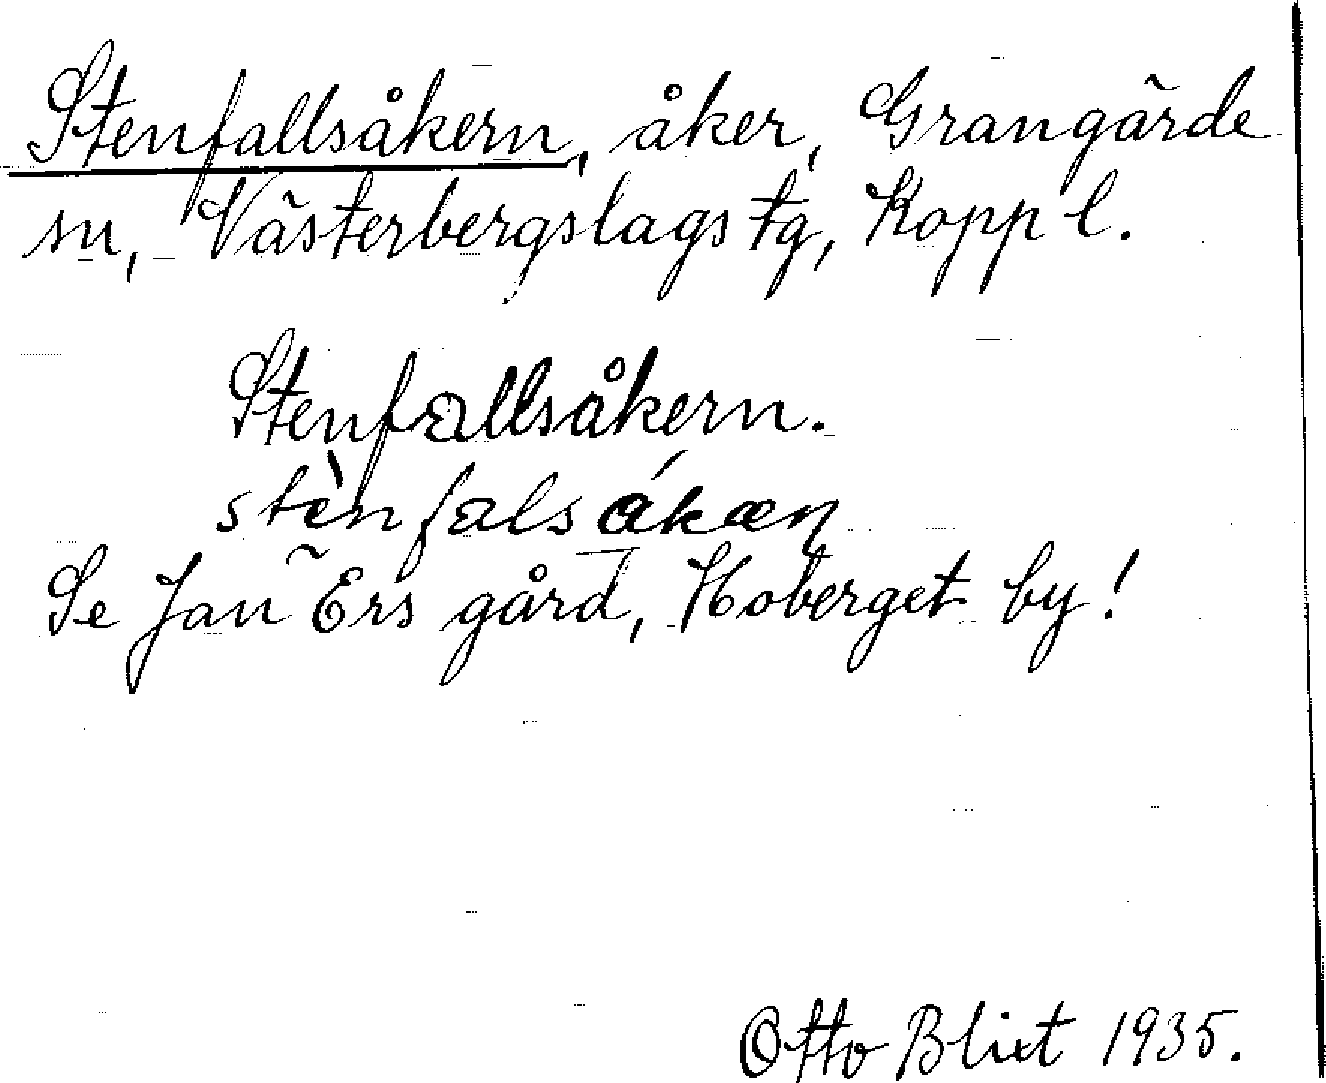 Stenfallsåkern, åker, Grangärde
sn, Västerbergslags tg, Kopp l.
Stenfallsåkern.
stènfals ákæṇ
Se Jan Ers gård, Hoberget by!
Otto Blixt 1935.